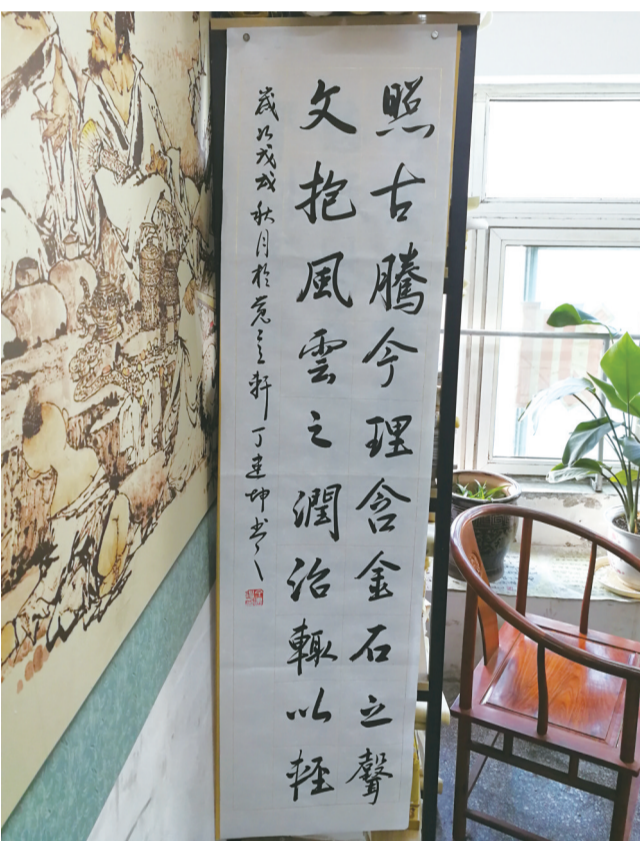 照古騰今理含金石之聲
文抱風雲之潤治輒以輕
歲次戊戌秋月於軒丁建坤書